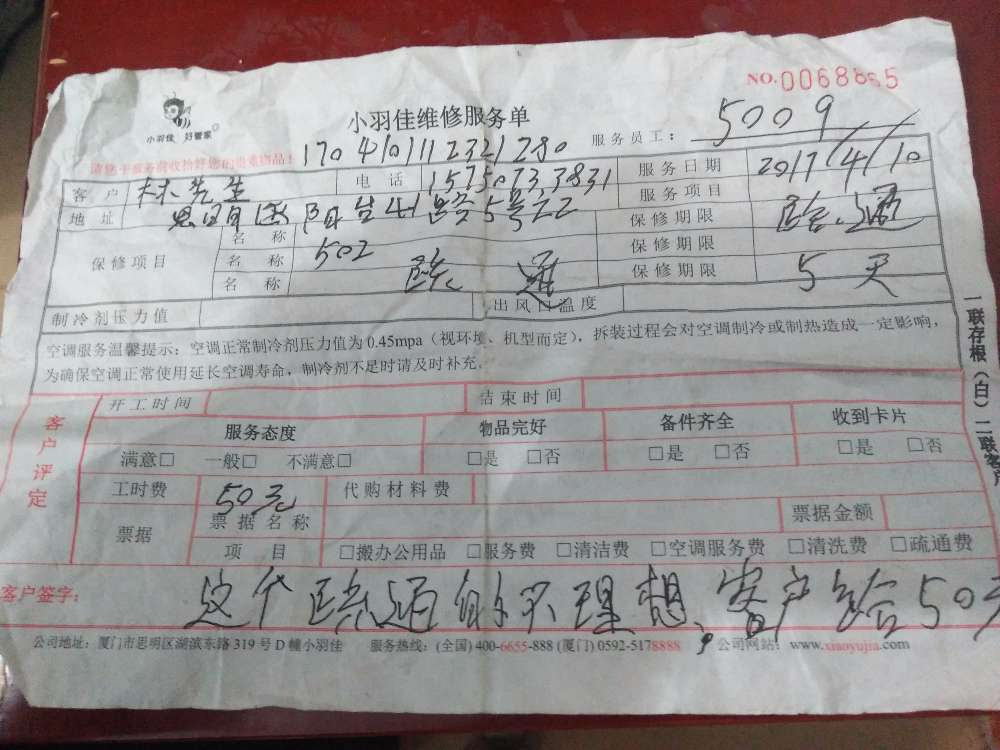 NO.
小羽佳 好管家
小羽佳维修服务单
服务员工： 5009
请您于服务前收拾好您的贵重物品！
客户 林先生 电话 服务日期 2017/4/10
地址 服务项目
保修项目 名称 502 保修期限
名称 保修期限
名称 保修期限 5天
制冷剂压力值 出风口温度
空调服务温馨提示：空调正常制冷剂压力值为0.45mpa（视环境、机型而定），拆装过程会对空调制冷或制热造成一定影响，
为确保空调正常使用延长空调寿命，制冷剂不足时请及时补充。
一联存根（白）二联客户
客户评定
开工时间 结束时间
服务态度 物品完好 备件齐全 收到卡片
满意□ 一般□ 不满意□ □是 □否 □是 □否 □是 □否
工时费 50元 代购材料费
票据 票据名称 票据金额
项目 □搬办公用品 □服务费 □清洁费 □空调服务费 □清洗费 □疏通费
客户签字： 这个 通的不理想，客户给50元
公司地址：厦门市思明区湖滨东路319号D幢小羽佳 服务热线：(全国) 400-6655-888 (厦门) 0592-5178888 公司网站：www.xiaoyujia.com